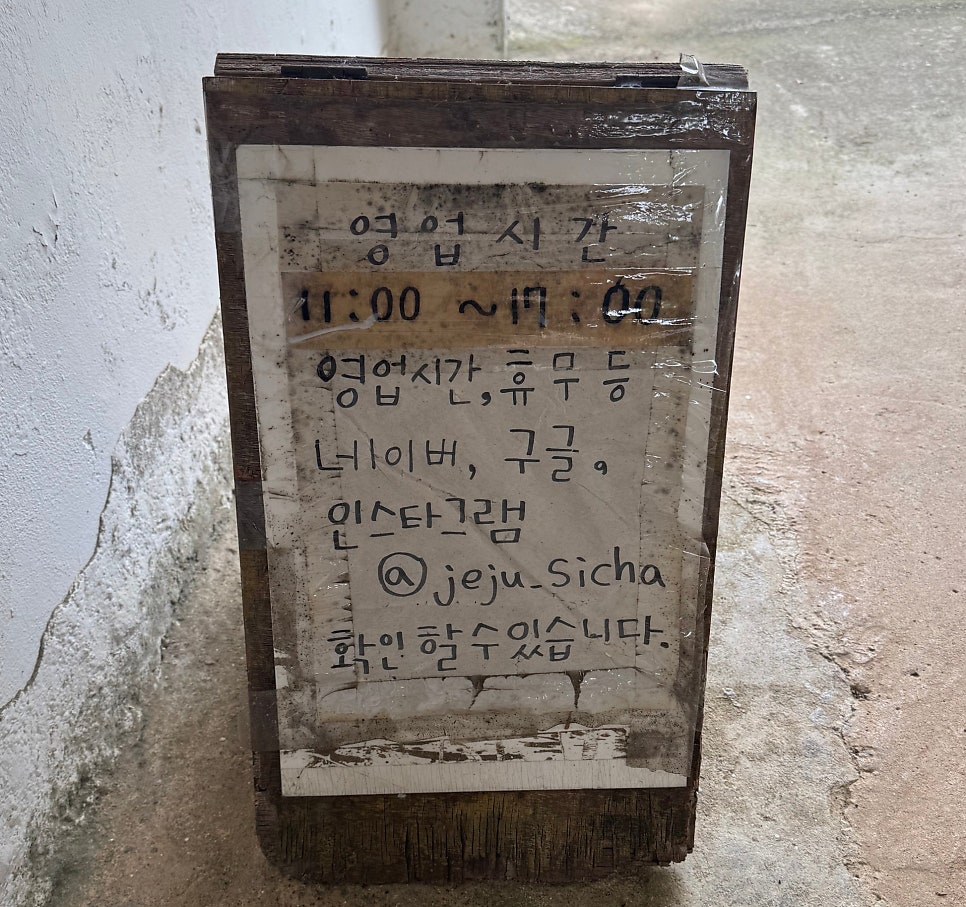 영업시간
11:00 ~17:00
영업시간, 휴무 등
네이버, 구글,
인스타그램
@jeju_sicha
확인할수있습니다.